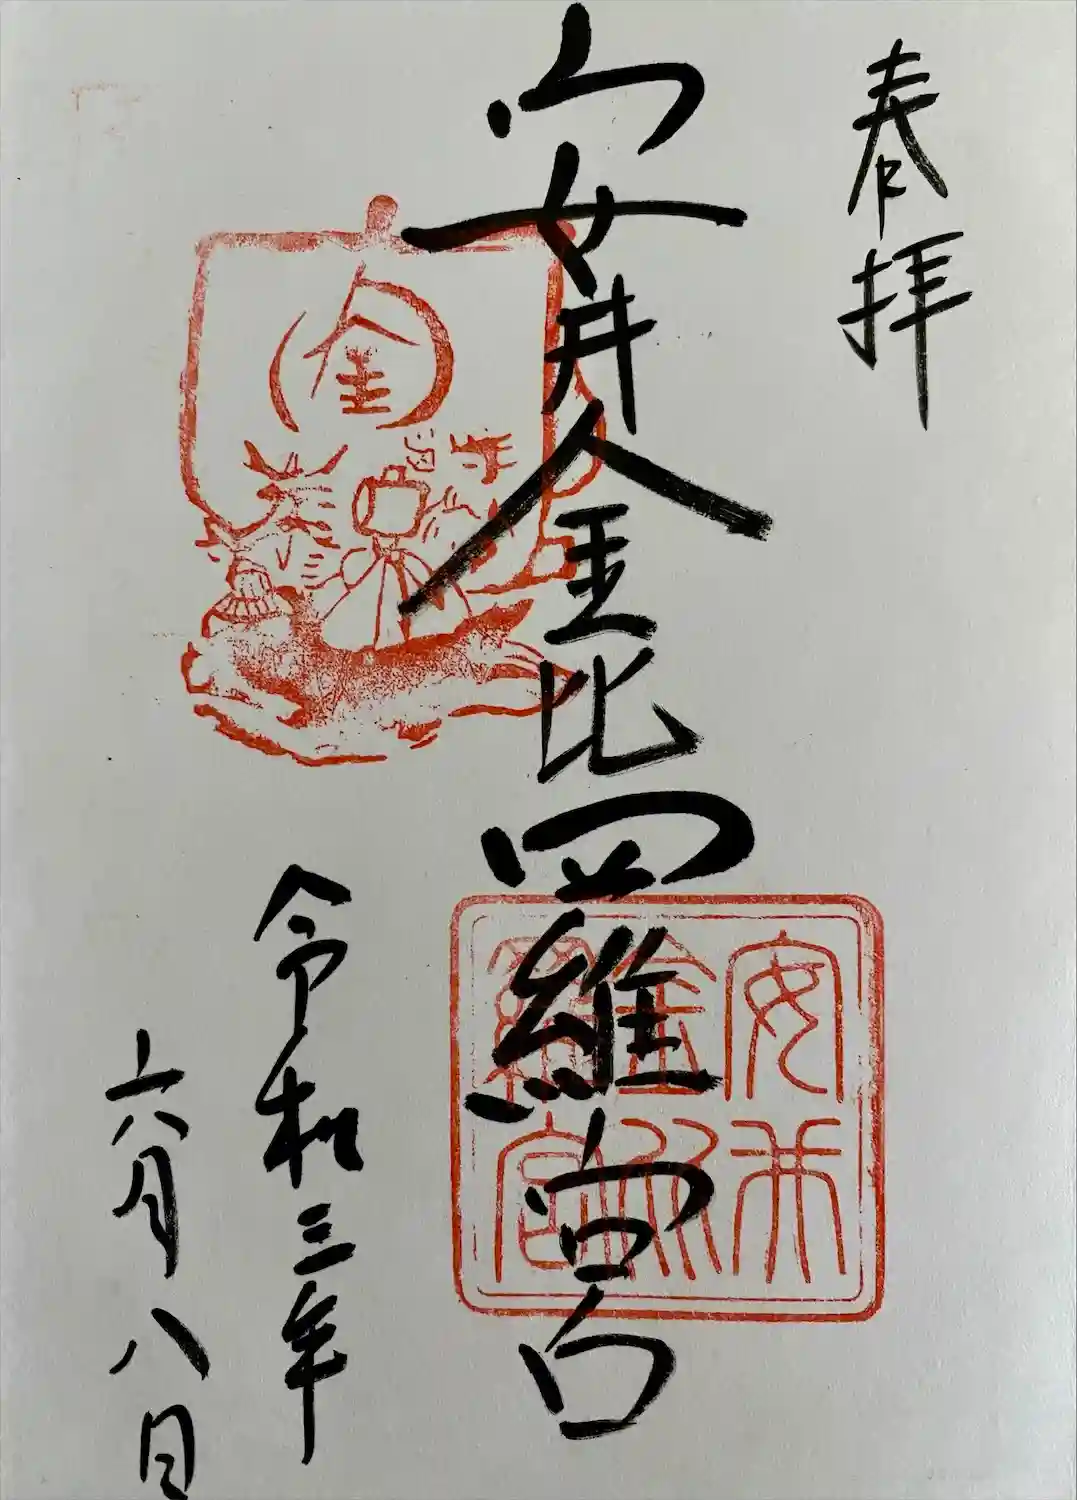 奉拝
安井金比羅宮
金
安井金比羅宮
令和三年
六月八日